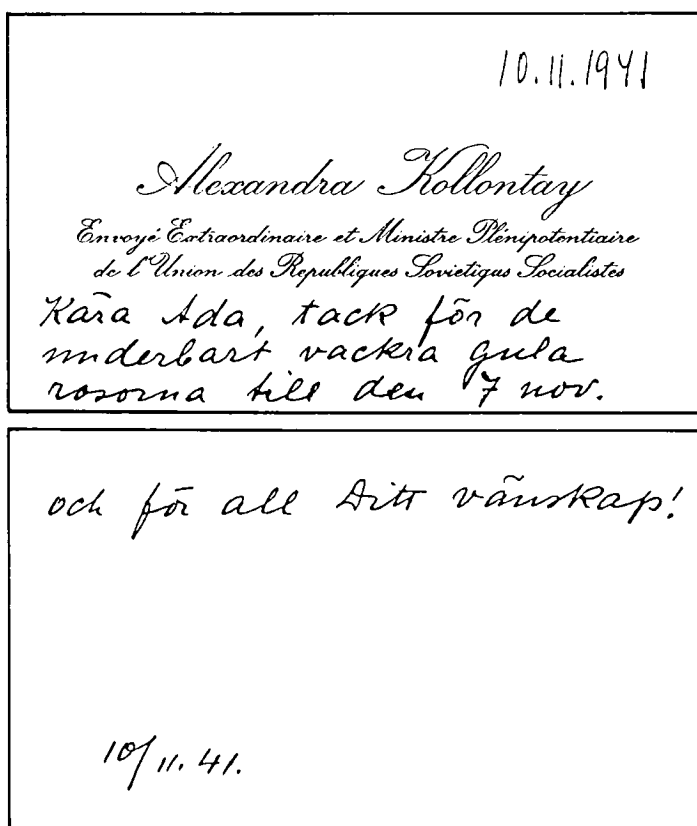 10.11.1941
Alexandra Kollontay
Envoyé Extraordinaire et Ministre Plénipotentiaire
de l'Union des Republiques Sovietiqus Socialistes
Kära Ada, tack för de
underbart vackra gula
rosorna till den 7 nov.
och för all Ditt vänskap!
10/11.41.